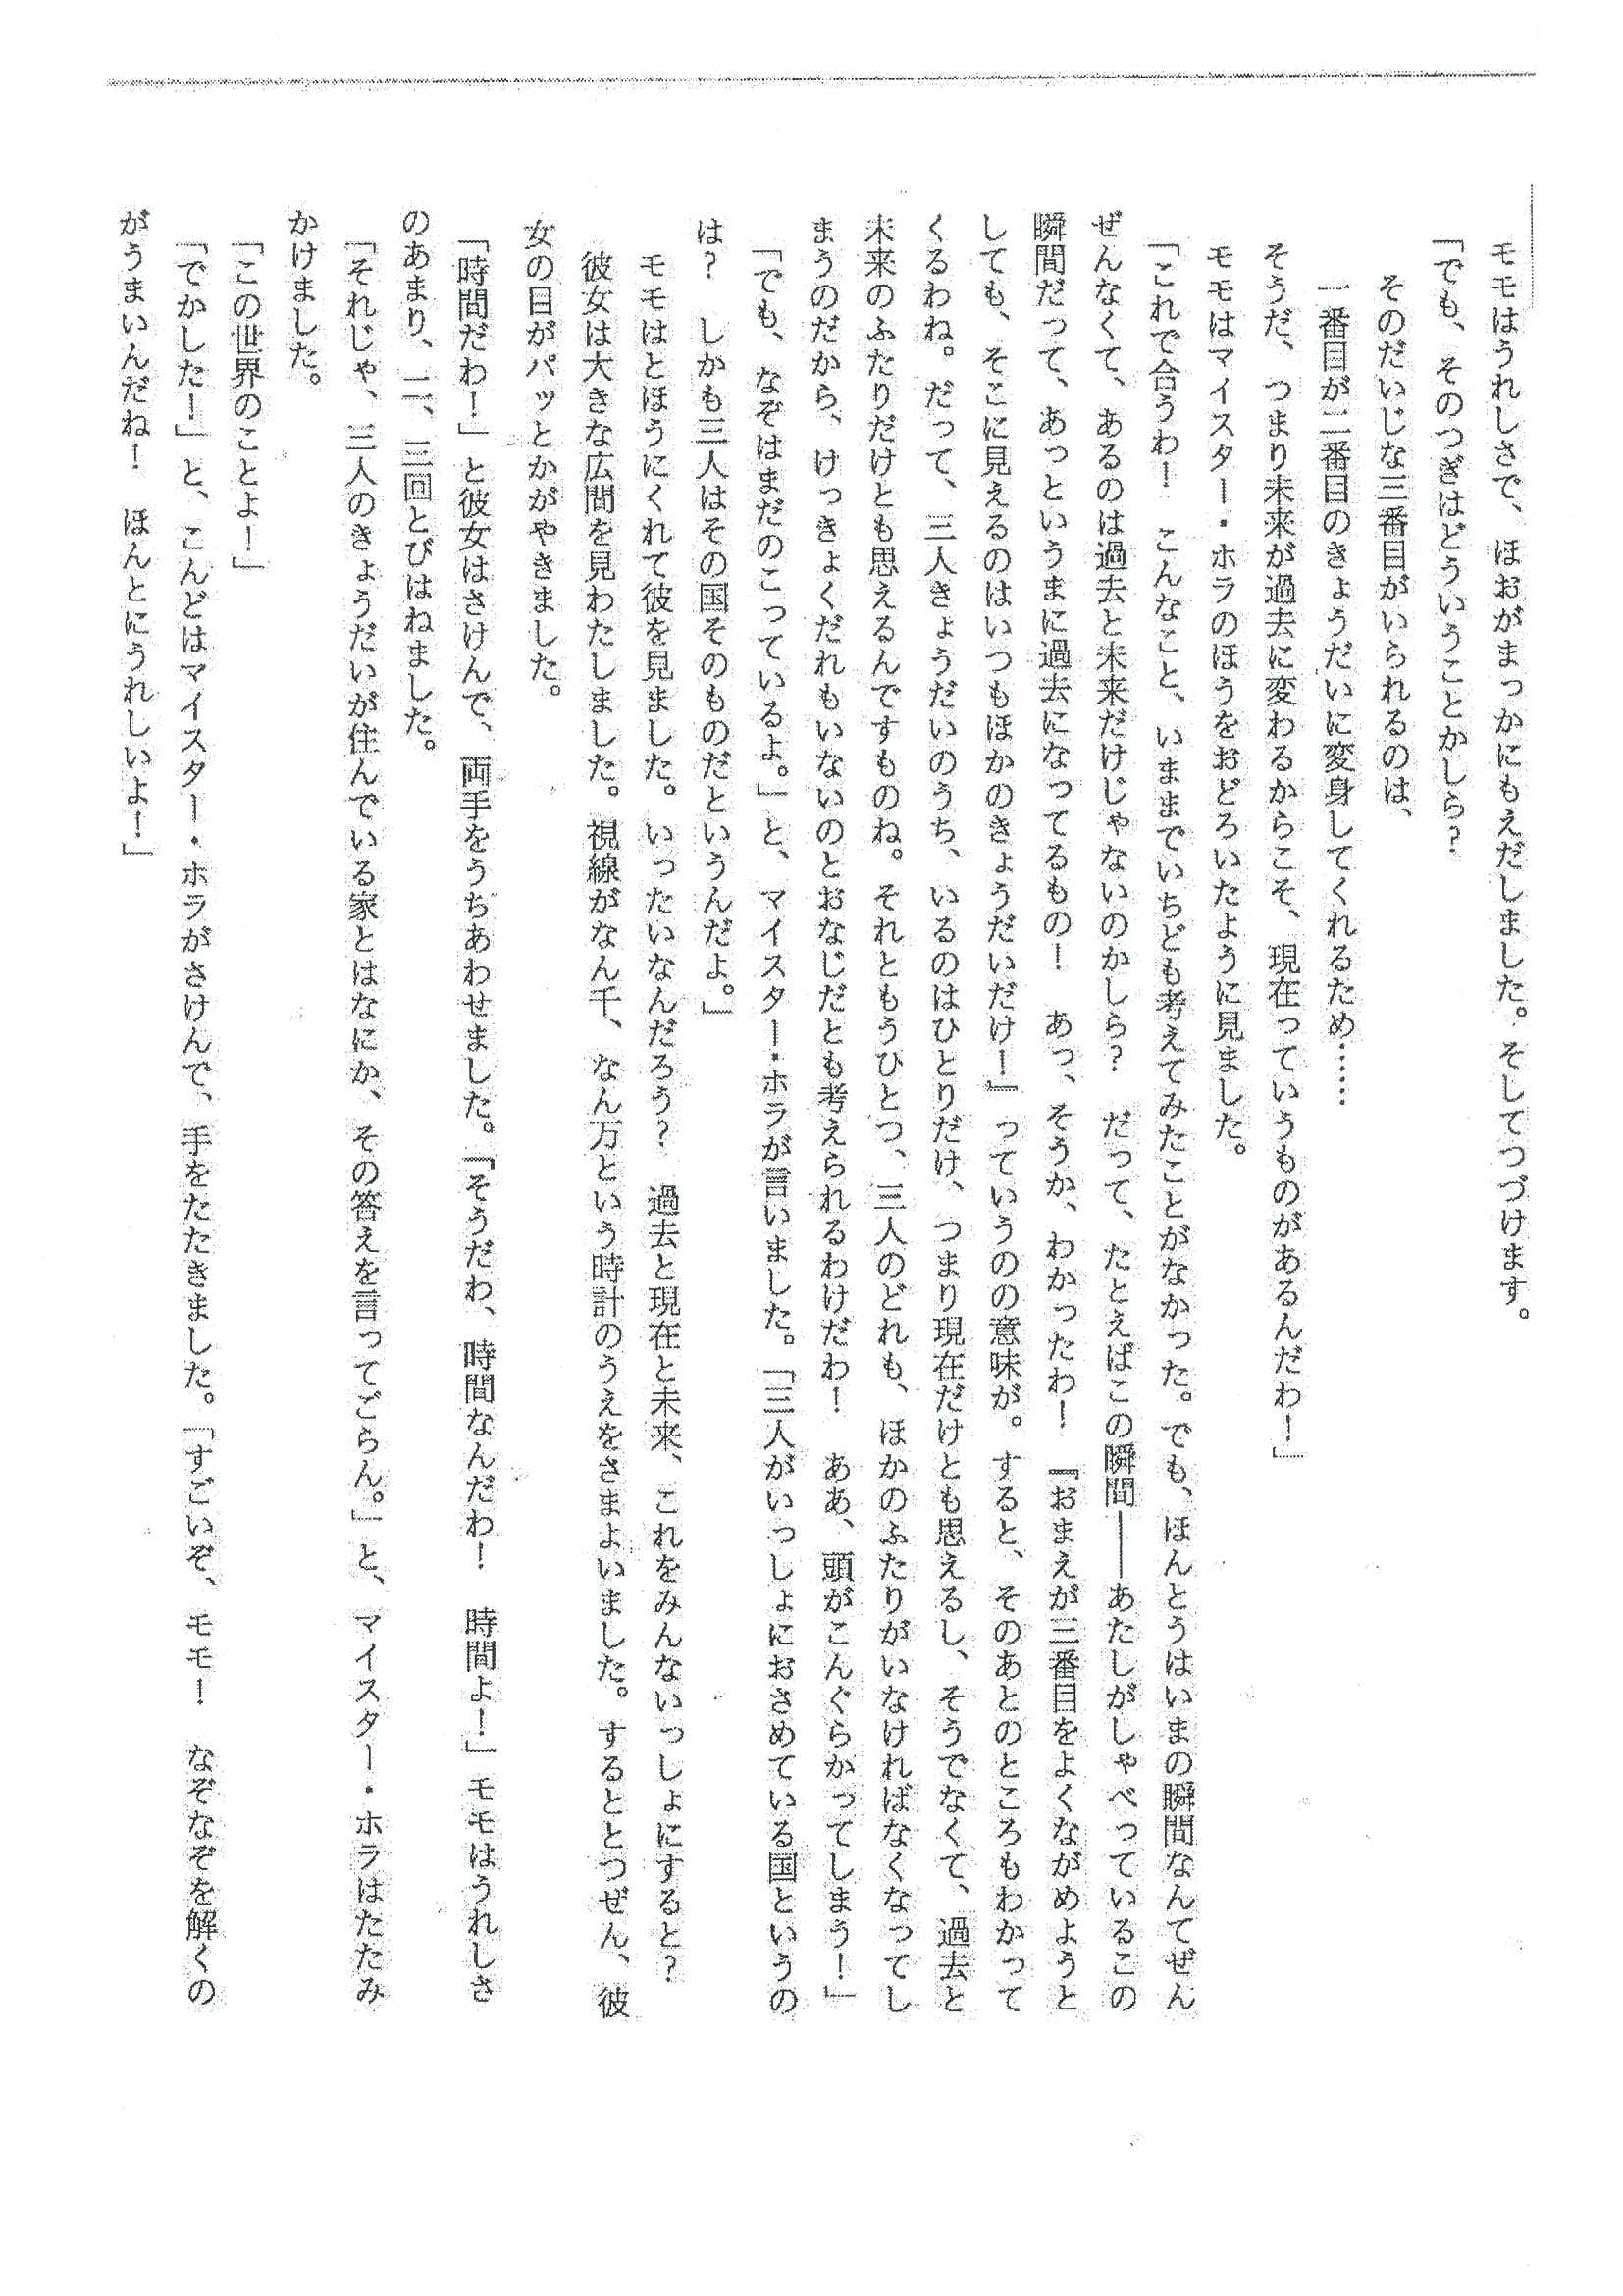 モモはうれしさで、ほおがまっかにもえだしました。そしてつづけます。
「でも、そのつぎはどういうことかしら？
そのだいじな三番目がいられるのは、
一番目が二番目のきょうだいに変身してくれるため……
そうだ、つまり未来が過去に変わるからこそ、現在っていうものがあるんだわ！」
モモはマイスター・ホラのほうをおどろいたように見ました。
「これで合うわ！　こんなこと、いままでいちども考えてみたことがなかった。でも、ほんとうはいまの瞬間なんてぜん
ぜんなくて、あるのは過去と未来だけじゃないのかしら？　だって、たとえばこの瞬間――あたしがしゃべっているこの
瞬間だって、あっというまに過去になってるもの！　あっ、そうか、わかったわ！　『おまえが三番目をよくながめようと
しても、そこに見えるのはいつもほかのきょうだいだけ！』っていうのの意味が。すると、そのあとのところもわかって
くるわね。だって、三人きょうだいのうち、いるのはひとりだけ、つまり現在だけとも思えるし、そうでなくて、過去と
未来のふたりだけとも思えるんですものね。それともうひとつ、三人のどれも、ほかのふたりがいなければなくなってし
まうのだから、けっきょくだれもいないのとおなじだとも考えられるわけだわ！　ああ、頭がこんぐらかってしまう！」
「でも、なぞはまだのこっているよ。」と、マイスター・ホラが言いました。「三人がいっしょにおさめている国というの
は？　しかも三人はその国そのものだというんだよ。」
モモはとほうにくれて彼を見ました。いったいなんだろう？　過去と現在と未来、これをみんないっしょにすると？
彼女は大きな広間を見わたしました。視線がなん千、なん万という時計のうえをさまよいました。するととつぜん、彼
女の目がパッとかがやきました。
「時間だわ！」と彼女はさけんで、両手をうちあわせました。「そうだわ、時間なんだわ！　時間よ！」モモはうれしさ
のあまり、二、三回とびはねました。
「それじゃ、三人のきょうだいが住んでいる家とはなにか、その答えを言ってごらん。」と、マイスター・ホラはたたみ
かけました。
「この世界のことよ！」
「でかした！」と、こんどはマイスター・ホラがさけんで、手をたたきました。「すごいぞ、モモ！　なぞなぞを解くの
がうまいんだね！　ほんとにうれしいよ！」